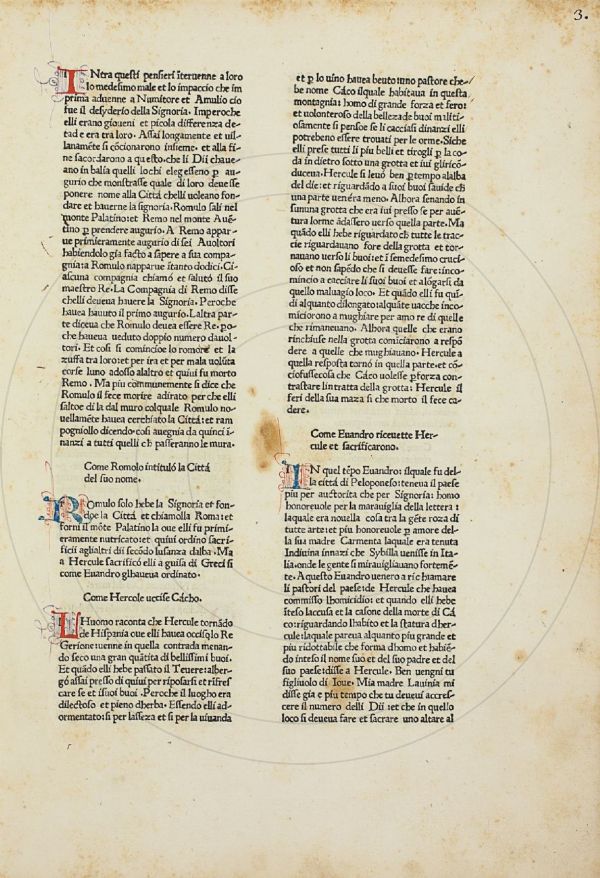 3.
INtra questi pensieri īteruenne a loro
lo medesimo male et lo impaccio che im
prima aduenne a Numitore et Amulio cio
fue il desyderio della Signoria. Imperoche
elli erano gioueni et picola differenza de-
tade era tra loro. Assai longamente et uil-
lanamēte si cōcionarono insieme. et alla fi-
ne sacordarono a questo. che li Dii chaue-
ano in balia quelli lochi elegesseno p au-
gurio che monstrasse quale di loro deuesse
ponere nome alla Cittá chelli ucleano fon-
dare et hauerne la signoria. Romulo sali nel
monte Palatino: et Remo nel monte Auē-
tino p prendere augurio. A Remo appar-
ue primieramente augurio di sei Auoltori
habiendolo gia facto a sapere a sua compa-
gnia: a Romulo napparue istanto dodici. Ci-
alcuna compagnia chiamó et salutó il suo
maestro Re. La Compagnia di Remo disse
chelli deueua hauere la Signoria. Peroche
haueua hauuto il primo augurio. Laltra par-
te diceua che Romulo deuea essere Re. po-
che haueua ueduto doppio numero dauol-
tori. Et cosi si comincioe lo romore et la
zuffa tra loro: et per ira et per mala uolūta
corse luno adosso alaltro et quiui fu morto
Remo. Ma piu communemente si dice che
Romulo il fece morire adirato per che elli
saltoe di la dal muro colquale Romulo no-
uellamēte hauea cerchiato la Cittá: et ram
pogniollo dicendo: cosi auegnia da quinci i-
nanzi a tutti quelli ch passeranno le mura.
Come Romolo intituló la Cittá
del suo nome.
ROmulo solo hebe la Signoria et fon-
doe la Cittá et chiamolla Roma: et
forni il mōte Palatino la oue elli fu primi-
eramente nutricato: et quiui ordino sacri-
ficii aglialtri dii secōdo lusanza dalba. Ma
a Hercule sacrificó elli a guisa di Greci si
come Euandro glhaueua ordinato.
Come Hercole uccise Cácho.
LHuomo raconta che Hercule tornādo
de Hispania oue elli hauea occiso lo Re
Gerione: uenne in quella contrada menan-
do seco una gran quātita di bellissimi buoi.
Et quādo elli hebe passato il Teuere: alber-
gó assai presso di quiui per riposarsi et rifres
care se et isuoi buoi. Peroche il luogho era
dilectoso et pieno dherba. Essendo elli ad-
ormentato: si per lasseza et si per la uiuanda
et p lo uino hauea beuto: uno pastore che-
be nome Cáco ilquale habitaua in questa
montagnia: homo di grande forza et fero:
et uolonteroso della belleza de buoi maliti-
osamente si pensoe se li cacciasi dinanzi elli
potrebeno essere trouati per le orme. Siche
elli prese tutti li piu belli et tirogli p la co
da in dietro sotto una grotta et iui gliricō-
duceua. Hercule si leuó ben p tempo alalba
del die: et riguardādo a suoi buoi sauide ch
una parte uenéra meno. Albora senando in
sununa grotta che era iui presso se per auē-
tura lorme ādassero uerso quella parte. Ma
quādo elli hebe riguardato ch tutte le trac-
cie riguardauano fore della grotta et tor-
nauano uerso li buoi: et i semedesimo cruci-
oso et non sapēdo che si deuesse fare: inco-
mincio a cacciare li suoi buoi et alōgarsi da
quello maluagio loco. Et quādo elli fu qui-
di alquanto dilongato: alquāte uacche inco-
miciorono a mughiare per amo re di quelle
che rimaneuano. Albora quelle che erano
rinchiuse nella grotta comiciarono a respō
dere a quelle che mughiauano. Hercule a
quella resposta tornó in quella parte. et cō-
ciofussecosa che Cáco uolesse p forza con-
trastare lintratta della grotta: Hercule il
feri della sua maza si che morto il fece ca-
dere.
Come Euandro riceuette Her-
cule et sacrificarono.
IN quel tēpo Euandro: ilquale fu del-
la cittá di Peloponeso: teneua il paese
piu per auctorita che per Signoria: homo
honoreuole per la marauiglia della lettera:
laquale era nouella cosa tra la gēte roza di
tutte arte: et piu honoreuole p amore del-
la sua madre Carmenta laquale era tenuta
Indiuina innazi che Sybilla uenisse in Ita-
lia. onde le gente si mirauigliauano fortemē-
te. Aquesto Euandro uenero a richiamare
li pastori del paese: de Hercule che hauea
commisso lhomicidio: et quando elli hebe
īteso laccusa et la casone della morte di Cá
co: riguardando lhabito et la statura dher-
cule: laquale pareua alquanto piu grande et
piu ridottabile che forma dhomo et habiē-
do inteso il nome suó et del suo padre et del
suo paese: disse a Hercule. Ben uengni tu
figliuolo di Ioue. Mia madre Lauinia mi
disse gia e piu tempo che tu deueui accres-
cere il numero delli Dii: et che in quello
loco si deueua fare et sacrare uno altare al